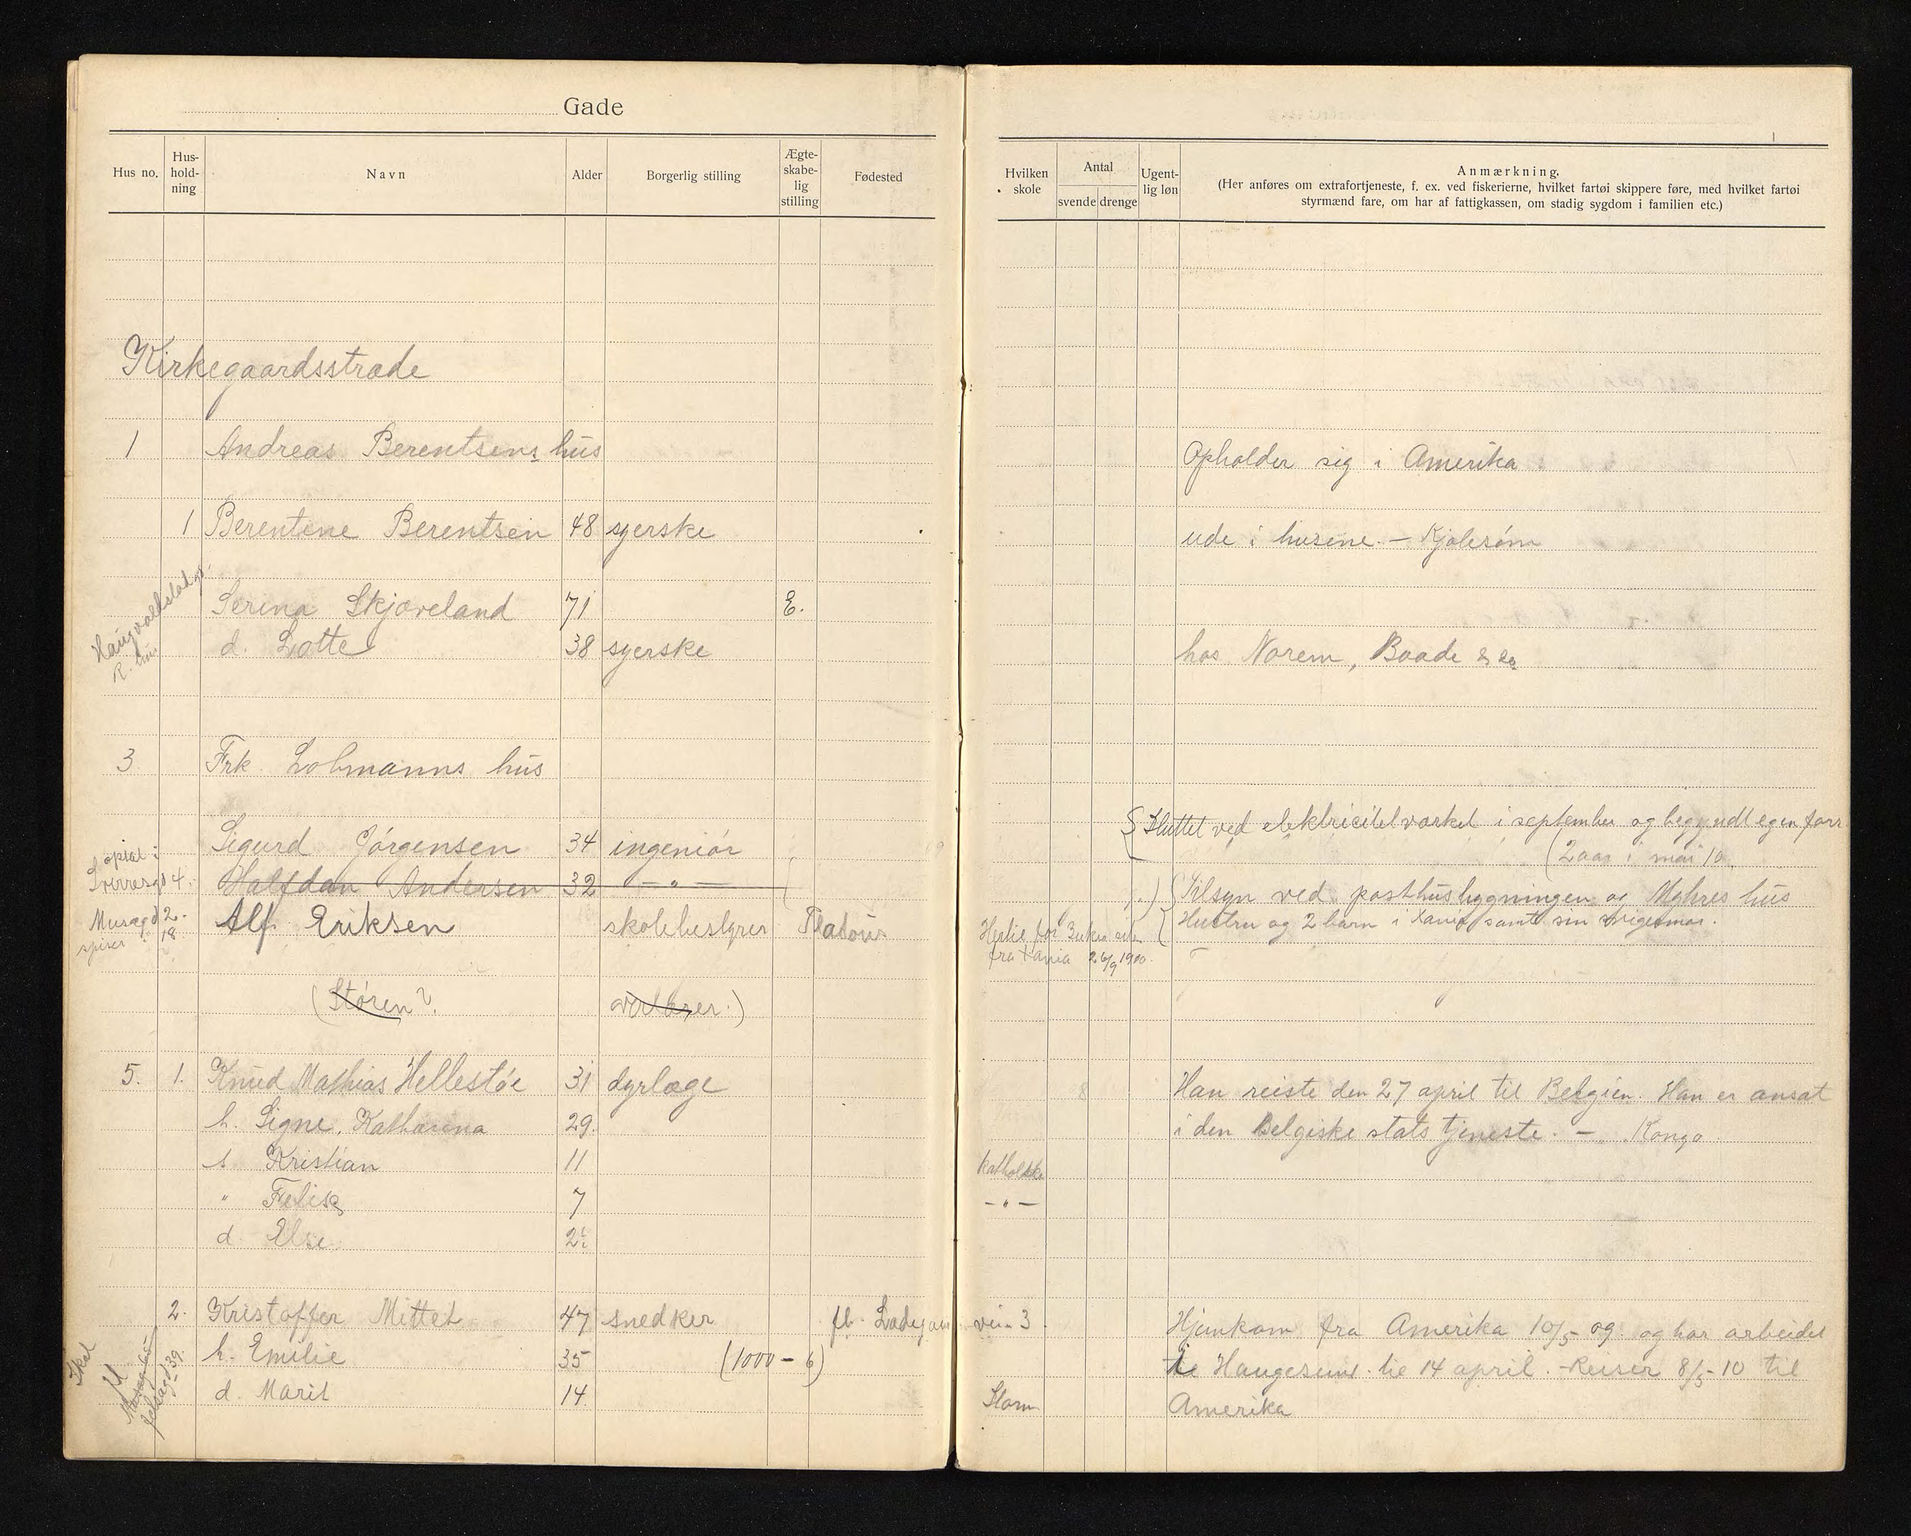 Gade
Hus no. Hus-hold-ning Navn Alder Borgerlig stilling Ægte-skabe-lig stilling Fødested
Kirkegaardsstræde
1 Andreas Berentsens hus
1 Berentine Berentsen 48 syerske
Serina Skjæveland 71 E.
d. Lotte 38 syerske
3 Frk. Lohmanns hus
Sigurd Jørgensen 34 ingeniør
4. Halfdan Andersen 32 — " —
Alf Eriksen skolebestyrer
(Støren?)
5. 1. Knud Mathias Hellestøe 31 dyrlæge
h. Signe Katharina 29.
s Kristian 11
" Felix 7
d. Else 2
2. Kristoffer Mittet 47 snedker
h. Emilie 35 (1000 – 6)
d. Marit 14
Hvilken skole Antal svende drenge Ugent-lig løn Anmærkning.
(Her anføres om extrafortjeneste, f. ex. ved fiskerierne, hvilket fartøi skippere føre, med hvilket fartøi
styrmænd fare, om har af fattigkassen, om stadig sygdom i familien etc.)
Opholder sig i Amerika
ude i husene. – Kjolesøm
hos Norem, Baade
Sluttet ved elektricitetværket i september og begyndt egen forr.
(2 aar i mai 10
Tilsyn ved posthusbygningen og hus
Hustru og 2 barn i Xania samt sin
fra Xania 26/9 1900.
8 Han reiste den 27 april til Belgien. Han er ansat
i den Belgiske stats tjeneste. – Kongo.
katholske
– " –
vei 3 Hjemkom fra Amerika 10/5 09 og har arbeidet
Haugesund til 14 april. – Reiser 8/5 – 10 til
Storm Amerika